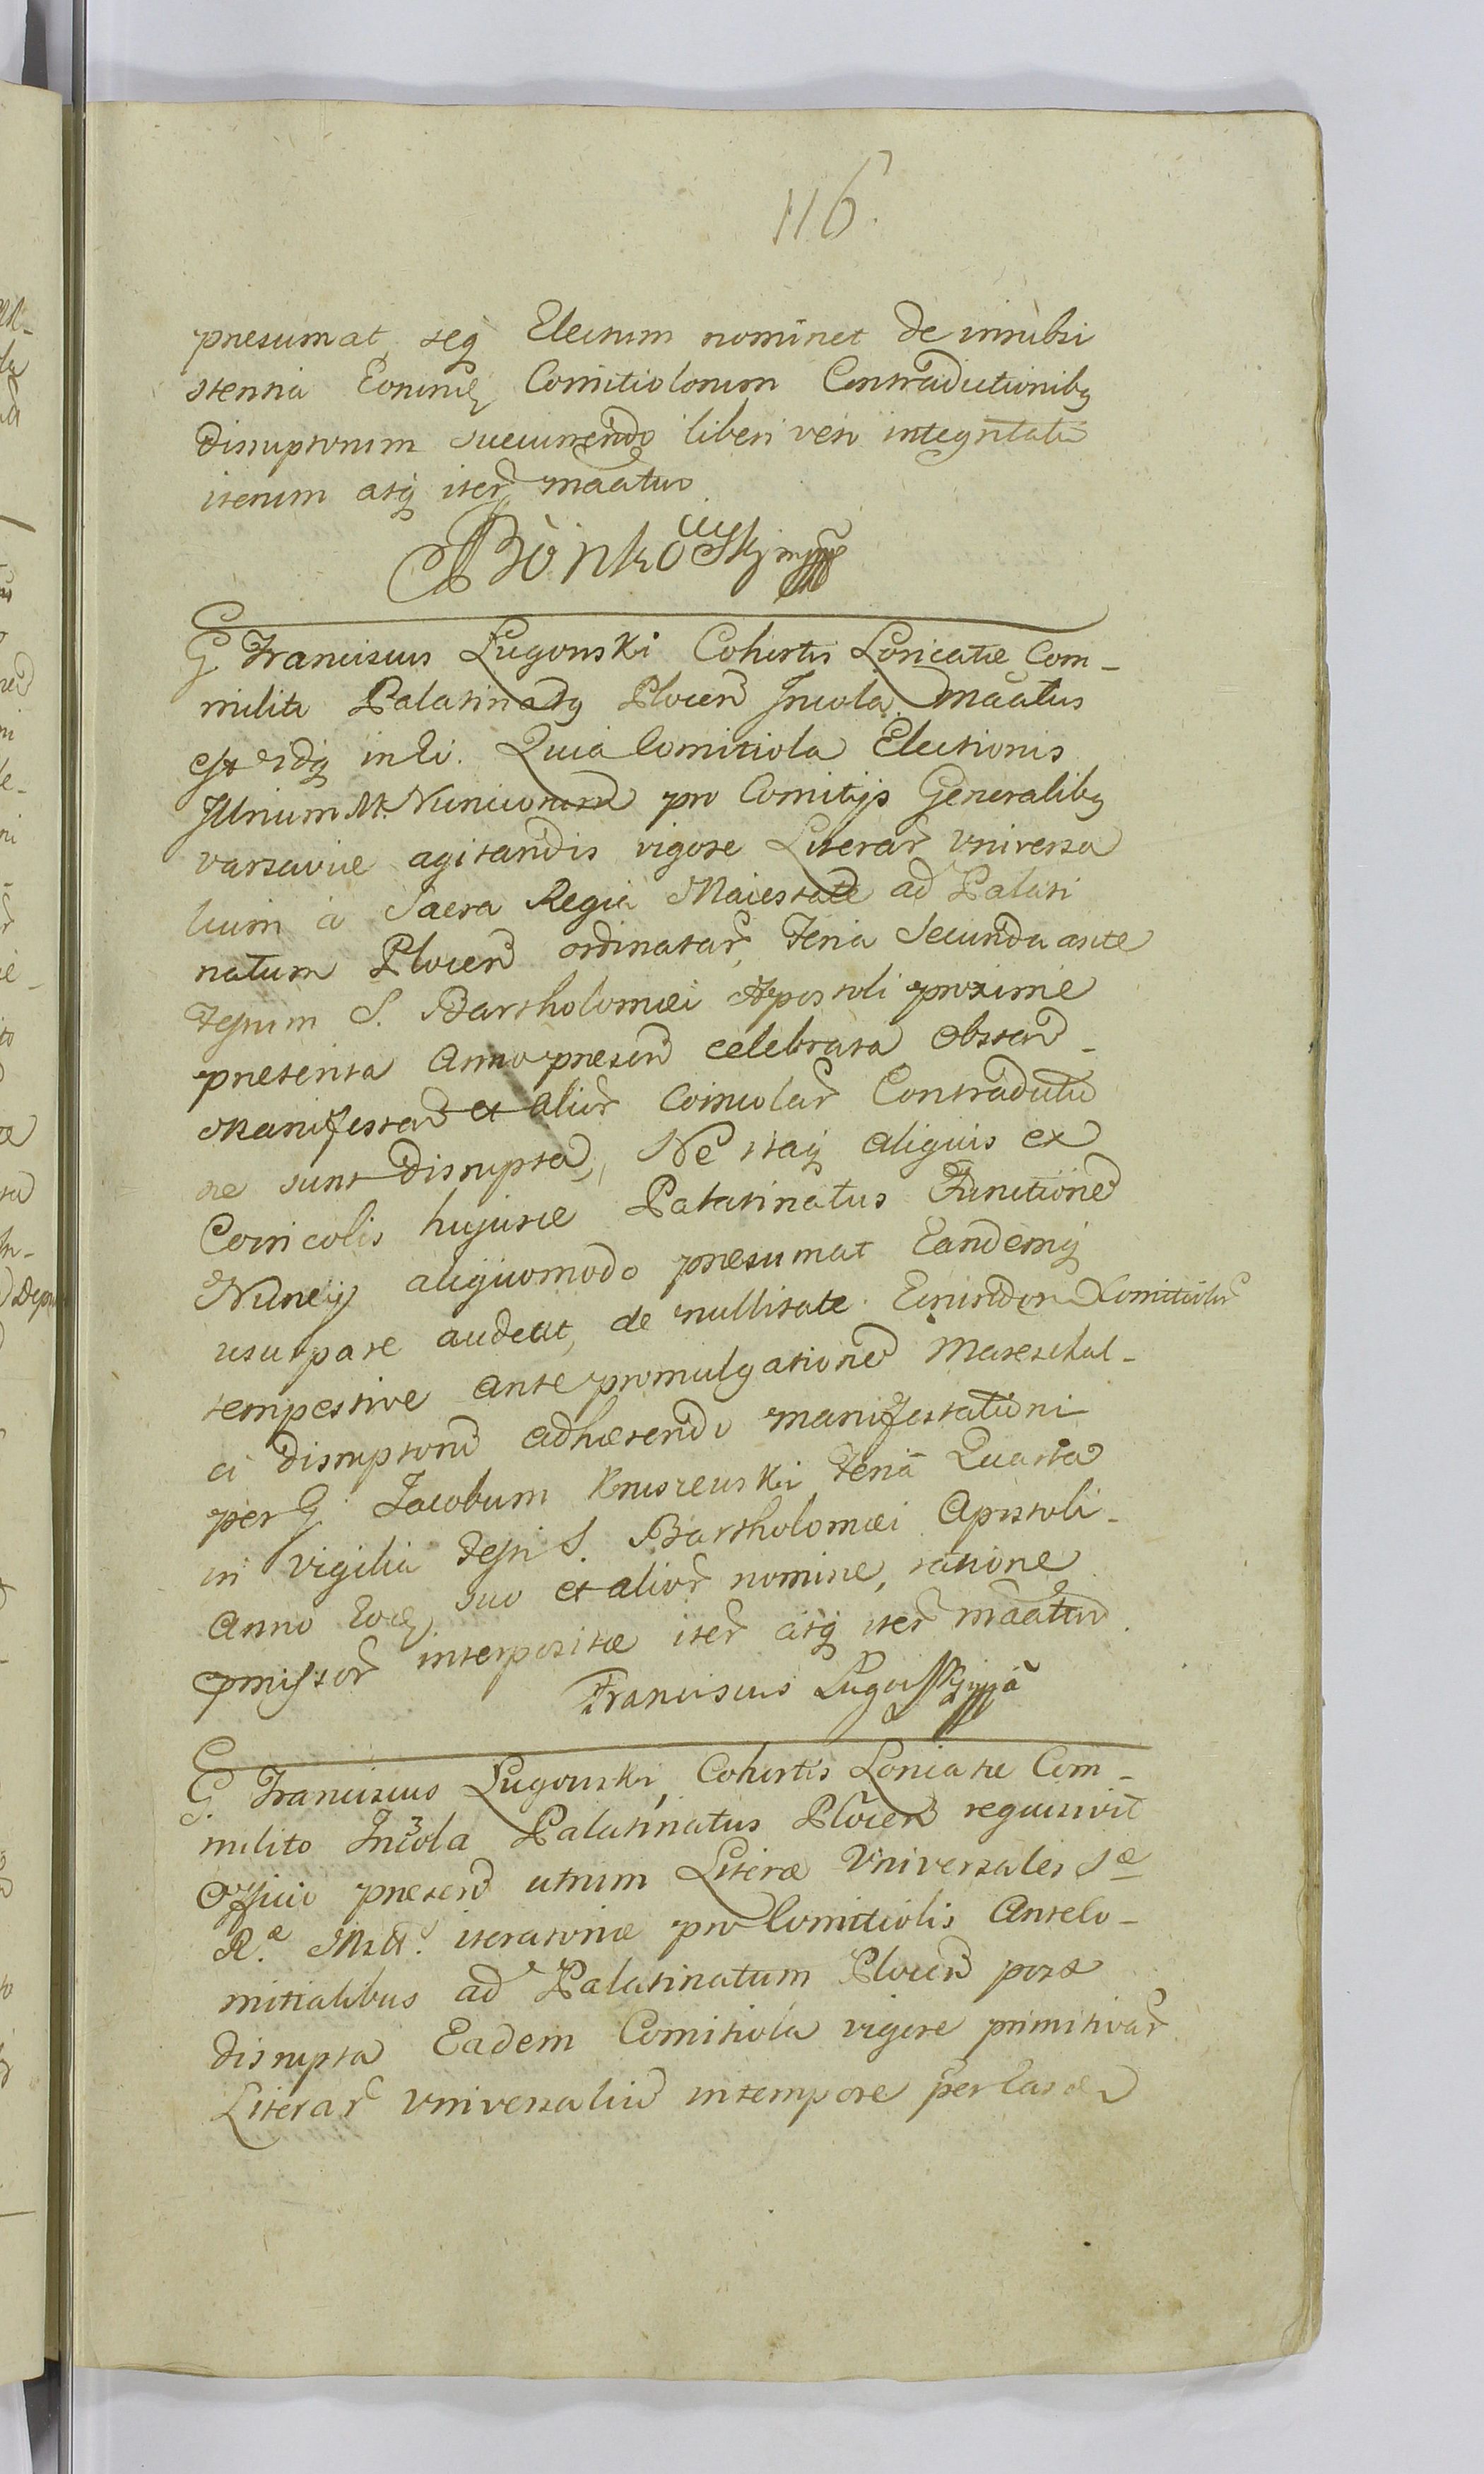 116.
presumat seq Electum nominet de insubsi
stentia Eorund Comitiolorum Contradictionibq
disruptorum succurrendo liberi veti integritati
iterum atq iter maatur
Bònkowskj mpp
G Franciscus Lugowski Cohortis Loricatæ Com-
milito Palatinatq Plocen Incola, maatus
est idq in Ei. Quia Comitiola Electionis
Illrium M. Nunciorum pro Comitijs Generalibq
varsaviæ agitandis vigore Literar Universa
lium à Sacra Regia Maiestate ad Palati
natum Plocen ordinatar, Feria Secunda ante
Festum S. Bartholomæi Apostoli proxime
præterita Anno præsen celebrata obstan
Manifestan et alior Coincolar Contradictio
ne sunt disrupta, Ne itaq aliquis ex
Coincolis hujusce Palatinatus Functione
Nuncij aliquomodo præsumat Eandemq
usurpare audeat, de nullitate Eorundem Comitiolor
tempestive ante promulgatione Mareschal-
ci disruptoru adhærendo manifestationi
per G. Jacobum Kruszewski Feria Quarta
in vigilia Festi S. Bartholomæi Apostoli
Anno Eod suo et alior nomine, ratione
pmissor interpositæ iter atq iter maatur.
Franciscus Lugowskj mpp
G. Franciscus Lugowski, Cohortis Loricatæ Com-
milito Incola Palatinatus Plocen requisivit
Officio præsen utrum Literæ Universales Sæ
R.æ Mtt. iteratoriæ pro Comitiolis Anteco-
mitialibus ad Palatinatum Plocen post
disrupta Eadem Comitiola vigore primitivar
Literar Universaliu in tempore perlatæ